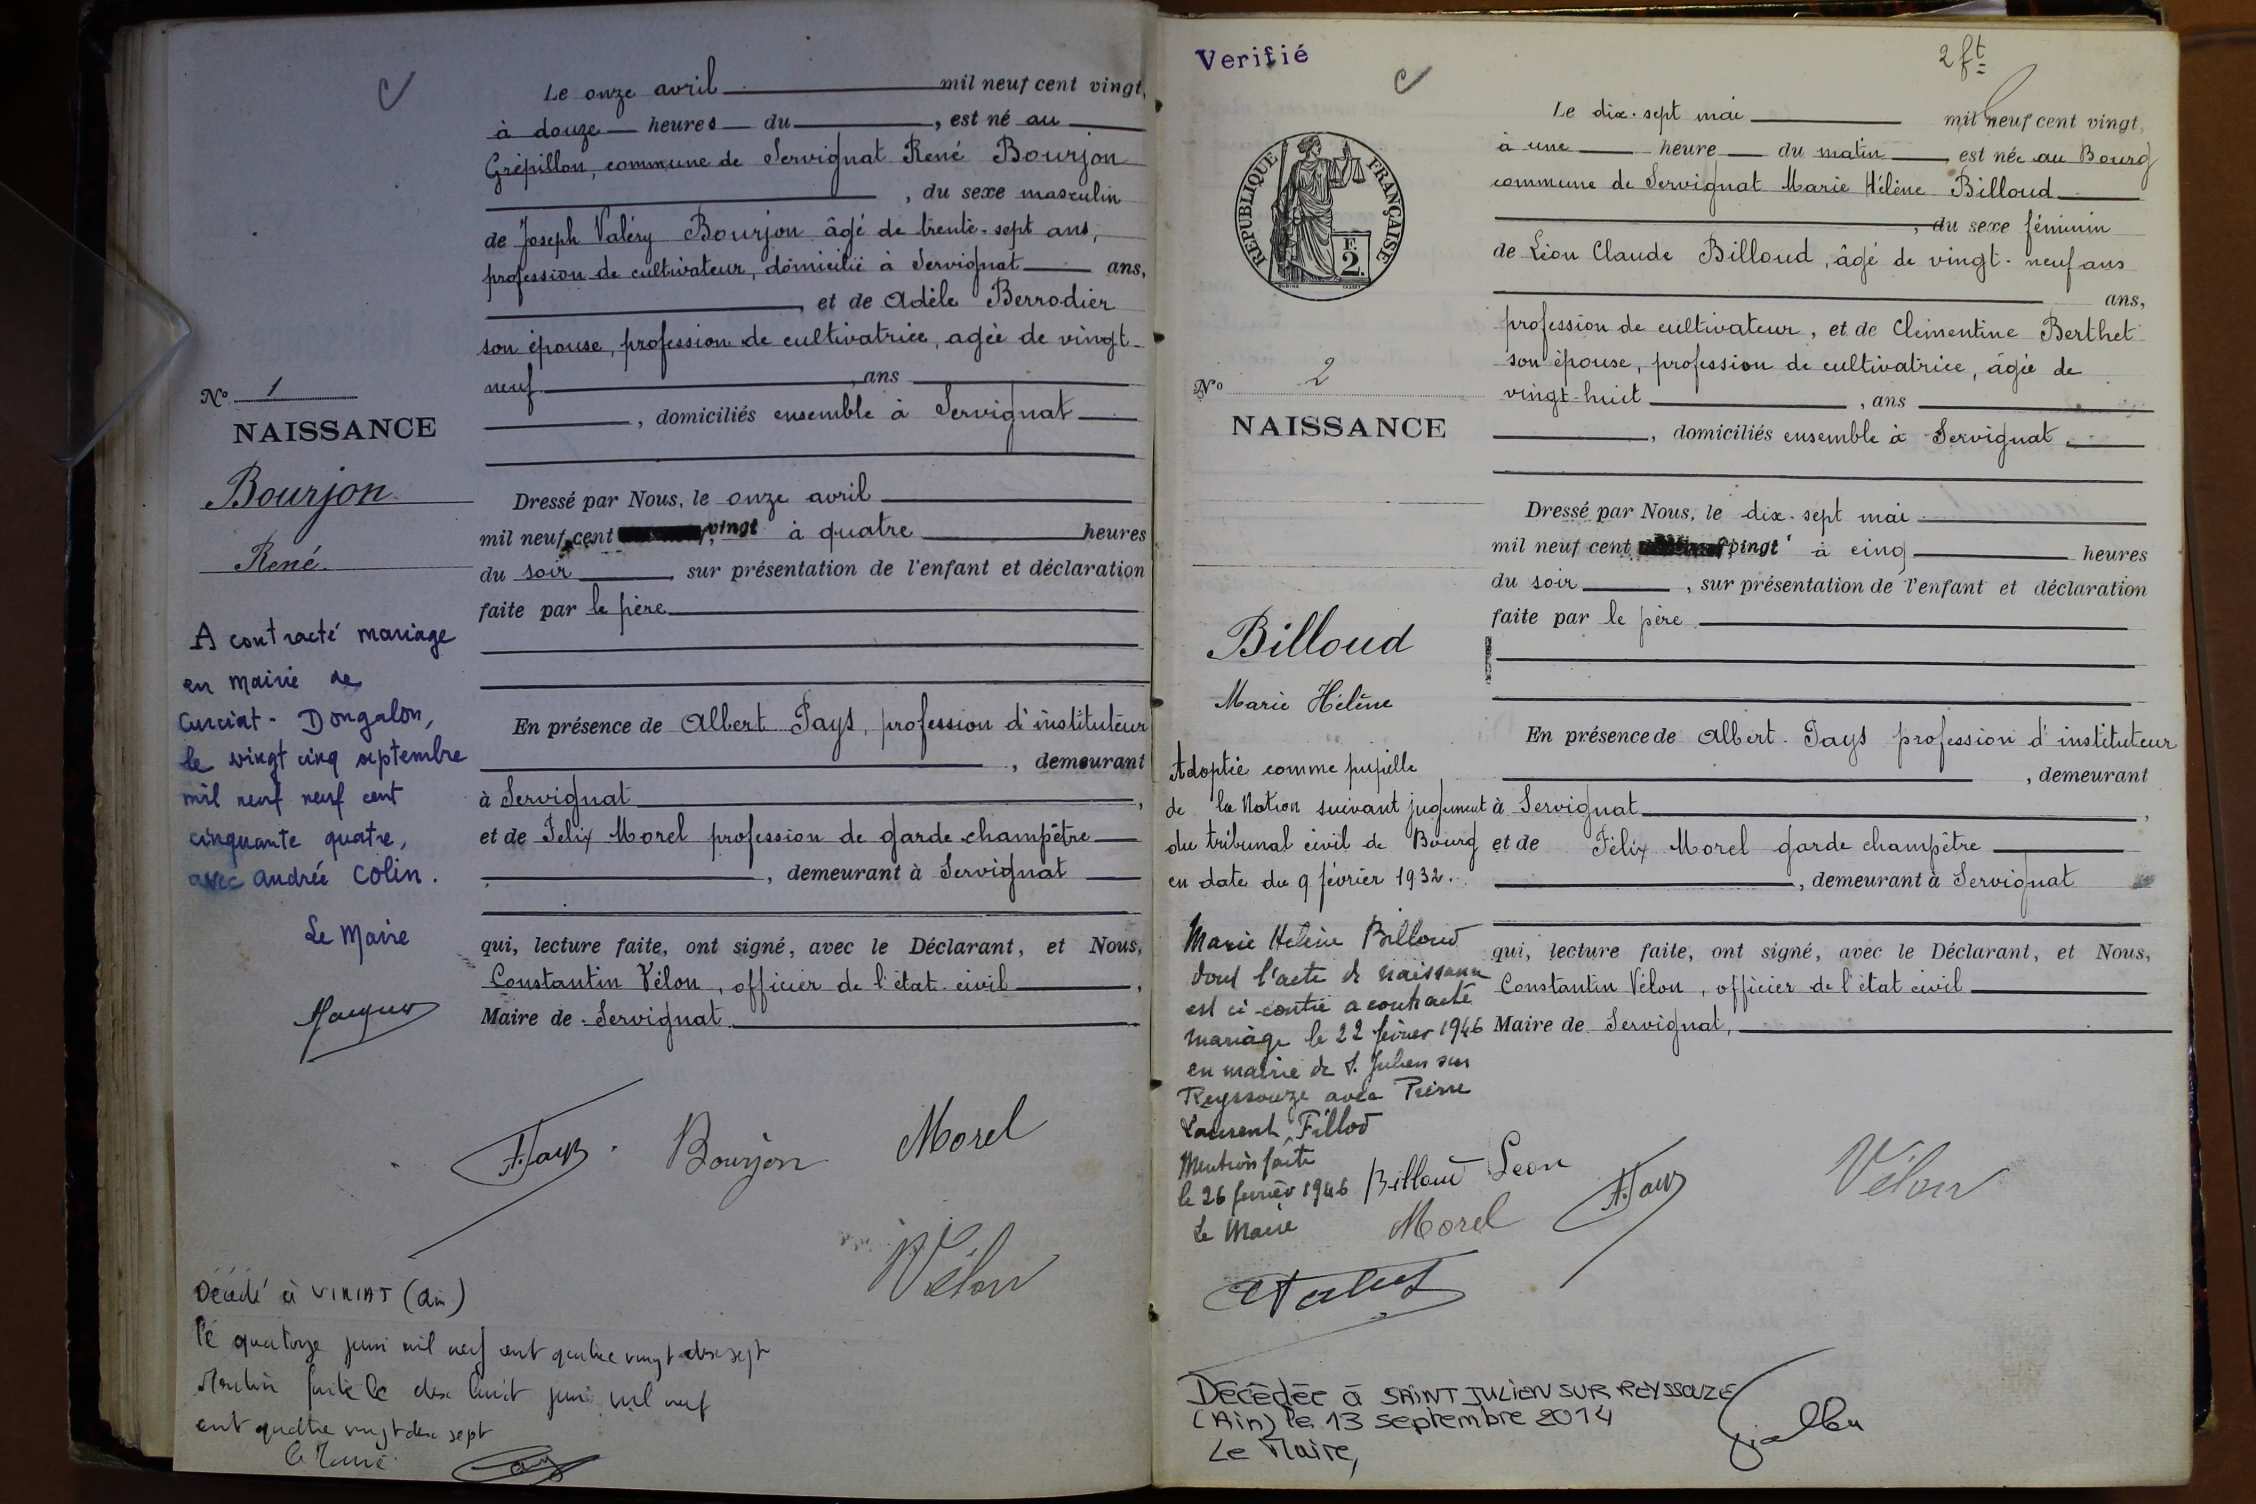 Le onze avril mil neuf cent vingt,
à douze heures du , est né au
Grépillon, commune de Servignat René Bourjon
, du sexe masculin
de Joseph Valéry Bourjon âgé de trente-sept ans,
profession de cultivateur, domicilié à Servignat ans,
et de Adèle Berrodier
son épouse, profession de cultivatrice, agée de vingt-
neuf , ans
, domiciliés ensemble à Servignat
Nº 1
NAISSANCE
Bourjon
René
Dressé par Nous, le onze avril
mil neuf cent vingt à quatre heures
du soir , sur présentation de l'enfant et déclaration
faite par le père
A contracté mariage
en mairie de
Curciat-Dongalon,
le vingt cinq septembre
mil neuf neuf cent
cinquante quatre,
avec Andrée Colin.
Le Maire
En présence de Albert Pays, profession d'instituteur
, demeurant
à Servignat ,
et de Felix Morel profession de garde champêtre
, demeurant à Servignat
qui, lecture faite, ont signé, avec le Déclarant, et Nous,
Constantin Vélon, officier de l'état civil ,
Maire de Servignat
A. Pays Bourjon Morel
Vélon
Décédé à VIRIAT (Ain)
le quatorze juin mil neuf cent quatre vingt dix sept
Mention faite le dix huit juin mil neuf
cent quatre vingt dix sept
Le Maire
Verifié
2 ft
RÉPUBLIQUE FRANÇAISE
F.
2.
Le dix-sept mai mil neuf cent vingt,
à une heure du matin est née au Bourg
commune de Servignat Marie Hélène Billoud
, du sexe féminin
de Léon Claude Billoud, âgé de vingt-neuf ans
ans,
profession de cultivateur, et de Clémentine Berthet
son épouse, profession de cultivatrice, âgée de
vingt-huit , ans
, domiciliés ensemble à Servignat,
Nº 2
NAISSANCE
Billoud
Marie Hélène
Dressé par Nous, le dix-sept mai
mil neuf cent vingt à cinq heures
du soir , sur présentation de l'enfant et déclaration
faite par le père
Adoptée comme pupille
de la Nation suivant jugement
du tribunal civil de Bourg
en date du 9 février 1932.
Marie Hélène Billoud
dont l'acte de naissance
est ci-contre a contracté
mariage le 22 février 1946
en mairie de S. Julien sur
Reyssouze avec Pierre
Laurent Fillod
Mention faite
le 26 février 1946
Le Maire
En présence de Albert Pays profession d'instituteur
, demeurant
à Servignat ,
et de Félix Morel garde champêtre
, demeurant à Servignat
qui, lecture faite, ont signé, avec le Déclarant, et Nous,
Constantin Vélon, officier de l'état civil
Maire de Servignat,
Billoud Léon A. Pays Vélon
Morel
Décédée à SAINT JULIEN SUR REYSSOUZE
(Ain) le 13 septembre 2014
Le Maire,